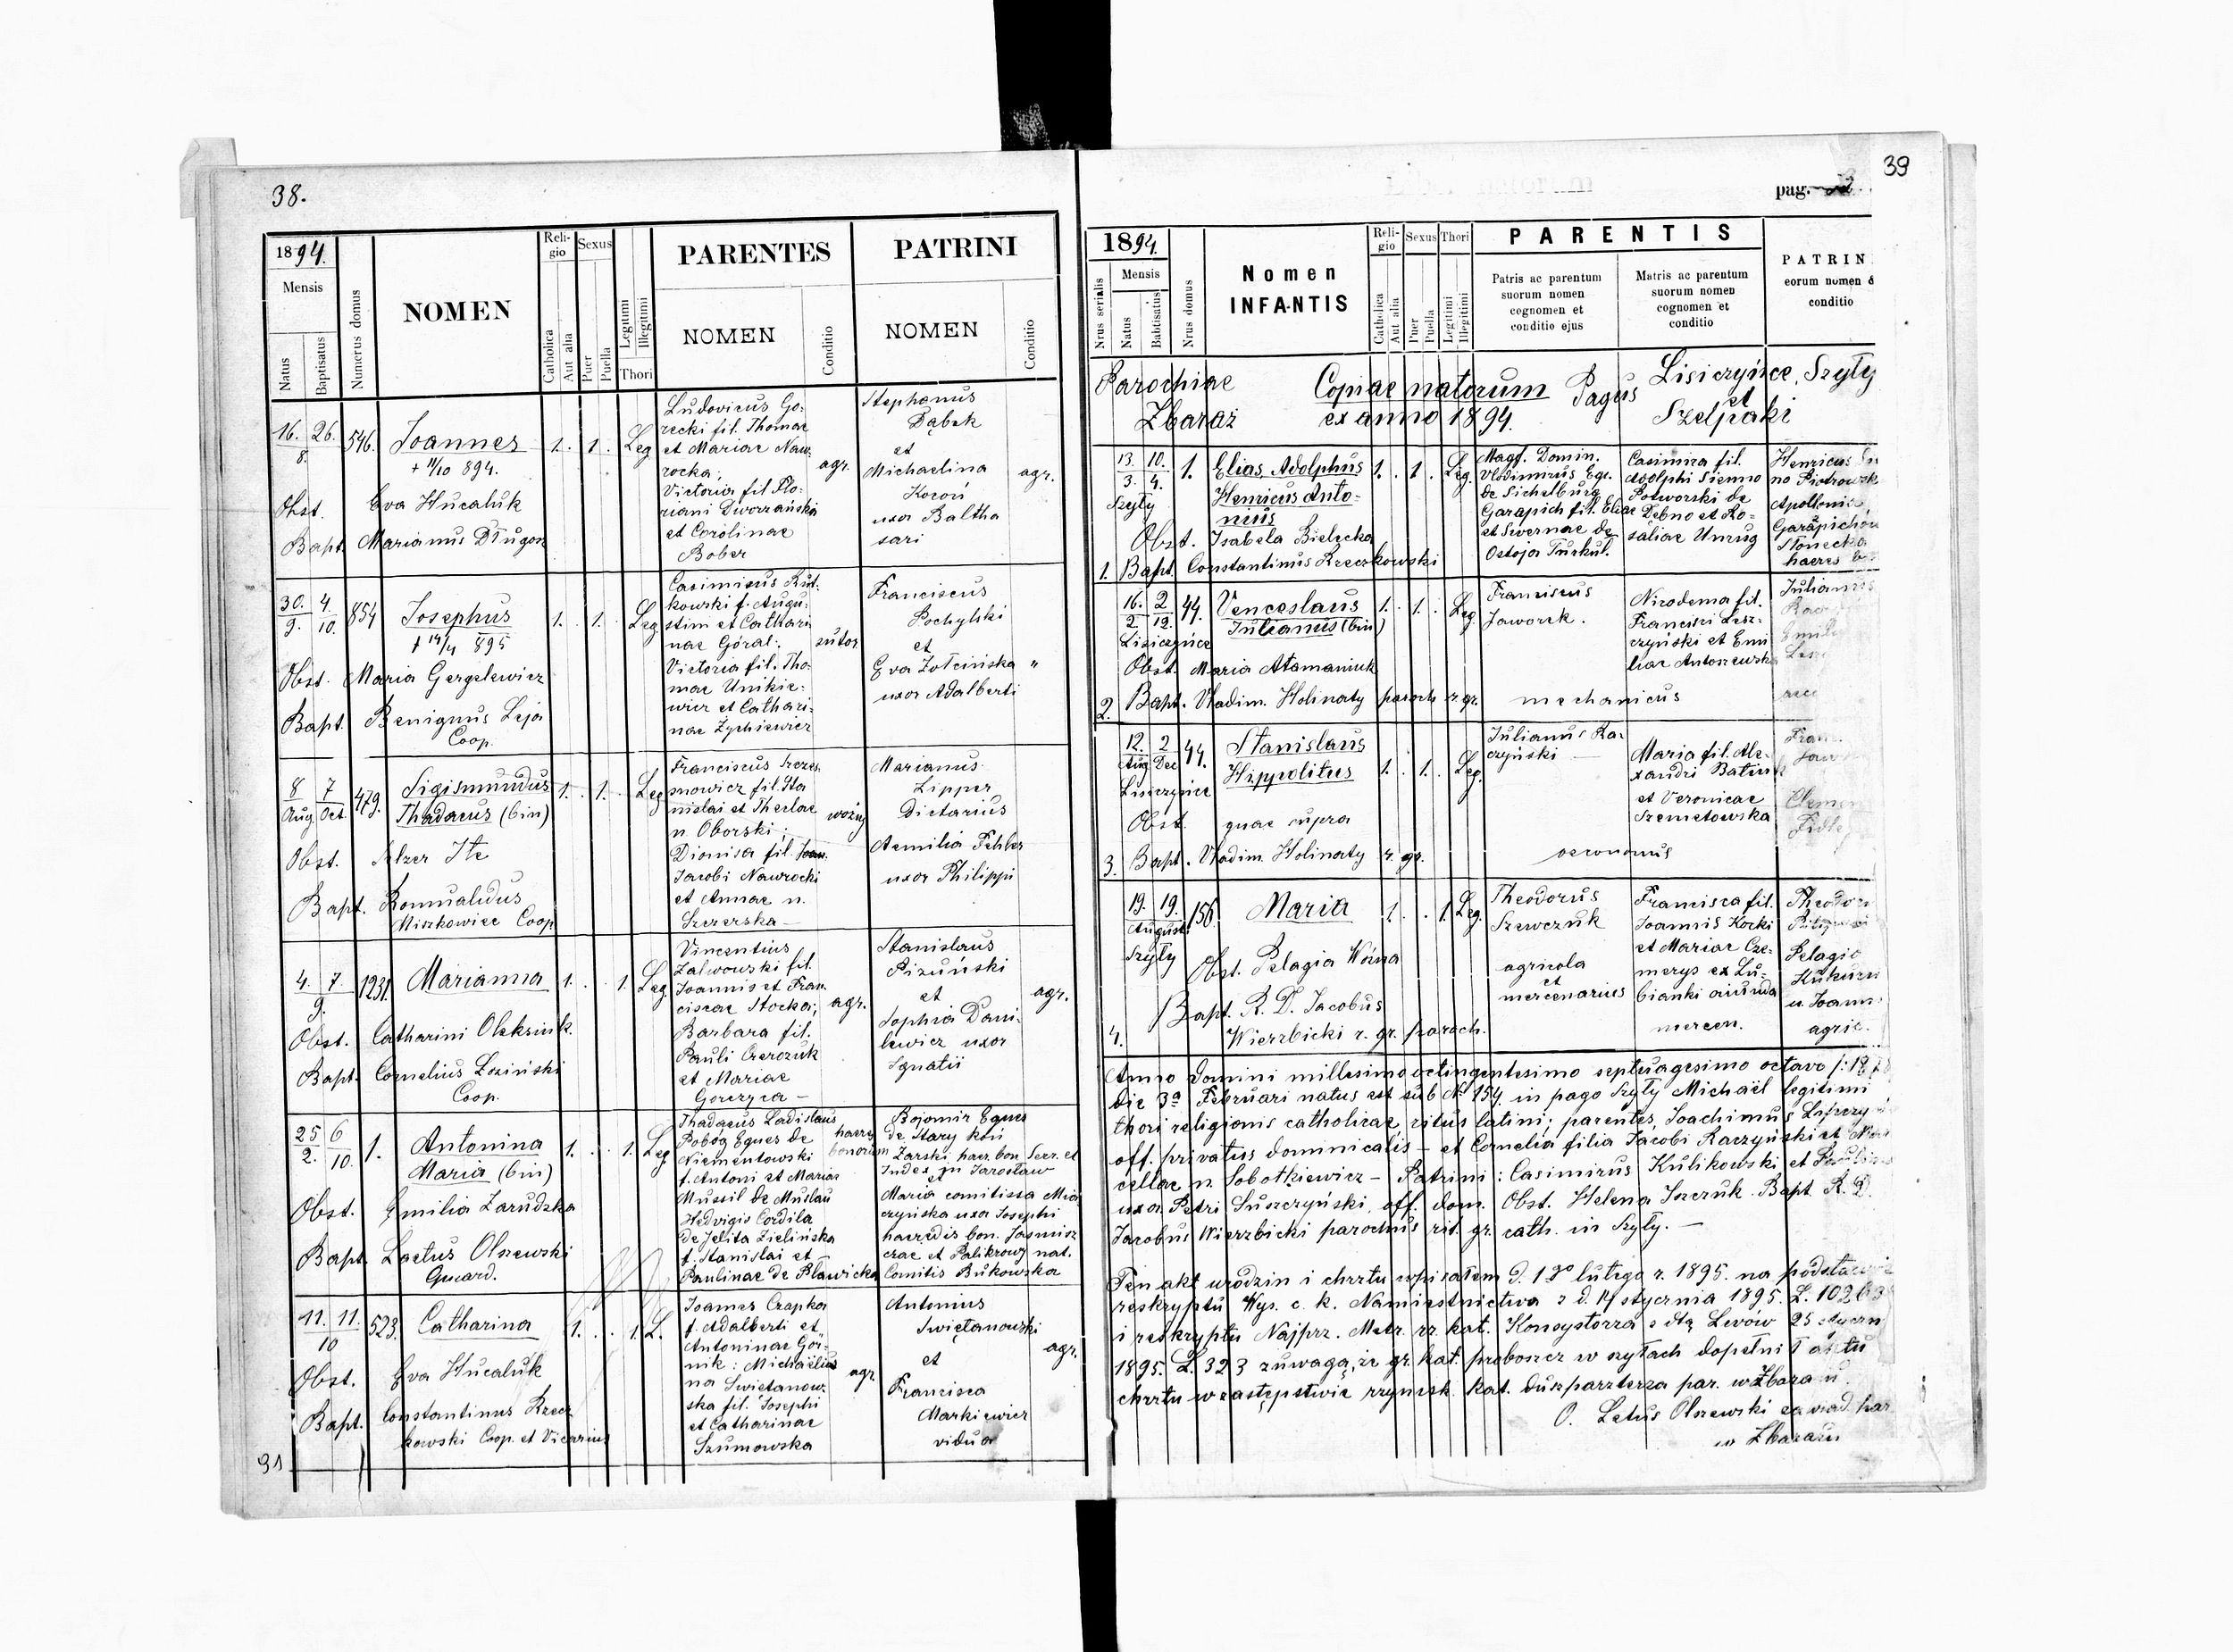 38.
1894.
Mensis
Natus
Baptisatus
Numerus domus
NOMEN
Reli-
gio
Catholica
Aut alia
Sexus
Puer
Puella
Legitimi
Illegitimi
Thori
PARENTES
NOMEN
Conditio
PATRINI
NOMEN
Conditio
16. 26.
8.
546.
Joannes
+ 11/10 894.
1. . 1 .
Leg
Obst. Eva Hucaluk
Bapt. Marianus Długon
Ludovicus Go-
recki fil. Thomae
et Mariae Naw-
rocka;
Victoria fil Flo-
riani Dworzańska
et Carolinae
Bober
agr.
Stephanus
Dąbek
et
Michaelina
Kocoń
uxor Baltha
sari
agr.
30. 4.
9. 10.
854
Josephus
+ 14/4 895
1. . 1. .
Leg
Obst. Maria Gergelewicz
Bapt. Benignus Leja
Coop.
Casimirus Rut-
kowski f. Augu-
stini et Cathari
nae Góral:
Victoria fil. Tho-
mae Unikie-
wicz et Cathari-
nae Zychiewicz
sutor
Franciscus
Pochylski
et
Eva Żołcińska "
uxor Adalberti
8 7
Aug Oct.
479.
Sigismundus
Thadaeus (bin)
1. . 1. .
Leg
Obst. Selzer Ite
Bapt. Romualdus
Miszkowiec Coop
Franciscus
mowicz fil. Sta
nislai et Theclae
n. Oborski;
Dionisa fil.
Jacobi Nawrocki
et Annae n.
Szczerska —
woźny
Marianus
Lipper
Dietarius
Aemilia Fehler
uxor Philippi
4. 7.
9.
1231.
Marianna
1. . . 1.
Leg.
Obst. Catharini Oleksiuk
Bapt. Cornelius Łoziński
Coop.
Vincentius
Zalwowski fil.
Joannis et Fran-
ciscae Stocka;
Barbara fil.
Pauli Czerczuk
et Mariae
Gorczyca —
agr.
Stanislaus
Pizuński
et
Sophia Dani-
lewicz uxor
Ignatii
agr.
25 6
2. 10.
1.
Antonina
Maria (bin)
1. . . 1.
Leg
Obst. Emilia Zarudzka
Bapt. Laetus Olszewski
Guard.
Thadaeus Ladislaus
Pobóg Eques de
Niementowski
f. Antoni et Mariae
Mussil de Muslau
Hedvigis Cordila
de Jelita Zielińska
f. Stanislai et —
Paulinae de Pławicka
haeres
bonorum
Bojomir Eques
de Stary koń
Żarski, haer. bon. Secr. et
Judex in Jarosław
et
Maria comitissa Mią
czyńska uxor Josephi
haeredis bon.
crae et Palikrowy nat.
Comitis Bukowska
11. 11.
10
523.
Catharina
1. . . 1.
L.
Obst. Eva Hucaluk
Bapt. Constantinus Krecz
kowski Coop. et Vicarius
Joannes Czapka
f. Adalberti et
Antoninae Gór-
nik: Michaëlis
na Swiętanow-
ska fil. Josephi
et Catharinae
Szumowska
agr.
Antonius
Swiętanowski
et
Francisca
Markiewicz
vidua
agr.
31
39
pag.
1894.
Nrus serialis
Mensis
Natus
Babtisatus
Nrus domus
Nomen
INFANTIS
Reli-
gio
Catholica
Aut alia
Sexus
Puer
Puella
Thori
Legitimi
Illegitimi
PARENTIS
Patris ac parentum
suorum nomen
cognomen et
conditio ejus
Matris ac parentum
suorum nomen
cognomen et
conditio
PATRIN
eorum nomen &
conditio
Parochiae Copiae natorum Pagus Lisiczyńce, Szyły
Zbaraż ex anno 1894. et Szelpaki
13. 10.
3. 4.
Szyły
1.
Elias Adolphus
Henricus Anto-
nius
1. . 1 .
Leg
Obst. Isabela Bielecka
1. Bapt. Constantinus Kreczkowski
Magf. Domin.
Vlodimirus Equ.
de Sichelburg
Garapich fil. Eliae
et Severnae de
Ostoja Turkul.
Casimira fil.
Adolphi Sienno
Potworski de
Dębno et Ro-
saliae Unrug
Henricus
no Piotrowsk
Apollonia,
Garapichow
Słonecka
haeres
16. 2
2 12.
Lisiczyńce
44.
Venceslaus
Julianus (bin)
1. . 1. .
Leg
Obst. Maria Atamaniuk
2. Bapt. Vladim. Holinaty paroch r. gr.
Franciscus
Jaworek.
mechanicus
Nicodema fil.
Francisci Lesz-
czyński et Emi
liae Antoszewska
Julianus
Emily
12. 2
Aug Dec
Lisiczyńce
44.
Stanislaus
Hippolitus
1. . 1. .
Leg.
Obst. quae supra
3. Bapt. Vladim. Holinaty r. gr.
Julianus Ra-
czyński —
oeconomus
Maria fil. Ale-
xandri Batiuk
et Veronicae
Szemetowska
Franc.
Clemen
19. 19.
August.
Szyły
156.
Maria
1. . . 1.
Leg.
Obst. Pelagia Woźna
Bapt. R. D. Jacobus
4. Wierzbicki r. gr. paroch.
Theodorus
Szewczuk
agricola
et
mercenarius
Francisca fil.
Joannis Kocki
et Mariae Cze-
merys ex Łu-
bianki oriunda
mercen.
Theodor
Pelagia
Kukuru
u. Joann.
agric.
Anno Domini millesimo octingentesimo septuagesimo octavo /: 1878
die 3a Februari natus est sub No 154. in pago Szyły Michaël legitimi
thori religionis catholicae, ritus latini; parentes, Joachimus
off. privatus dominicalis — et Cornelia filia Jacobi Raczyński et Mar
cellae n. Sobotkiewicz — Patrini: Casimirus Kulikowski et Paulina
uxor Petri Suszczyński, off. dom. Obst. Helena Iszczuk. Bapt. R. D.
Jacobus Wierzbicki parochus rit. gr. cath. in Szyły. —
Ten akt urodzin i chrztu wpisałem d. 12o lutego r. 1895. na podstawie
reskryptu Wys. c. k. Namiestnictwa z d. 14 stycznia 1895. L.
i reskryptu Najprz. Metr. rz. kat. Konsystorza z dtą Lwów 25 styczn
1895. L. 323 z uwagą, że gr. kat. proboszcz w Szyłach dopełnił aktu
chrztu w zastępstwie rzymsk. kat. duszpasterza par. w Zbarażu.
O. Letus Olszewski zawiad. par
w Zbarażu